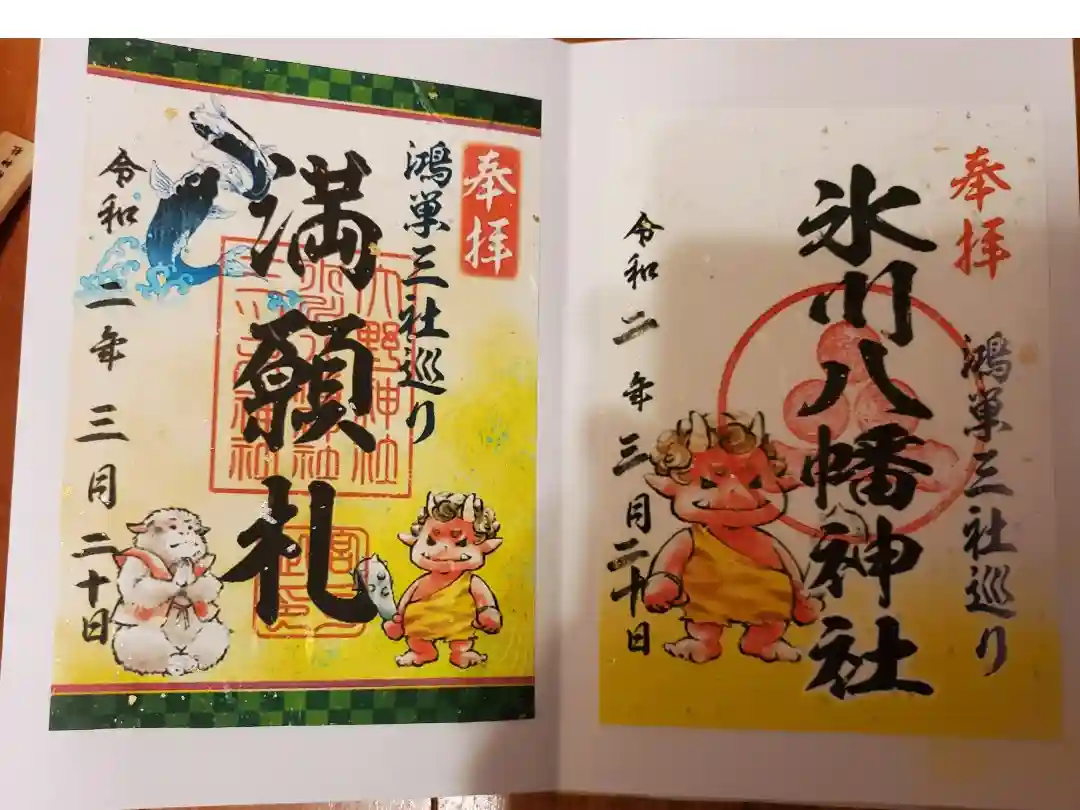 奉拝
鴻巣三社巡り
氷川八幡神社
令和二年三月二十日
奉拝
鴻巣三社巡り
満願札
令和二年三月二十日
大野神社